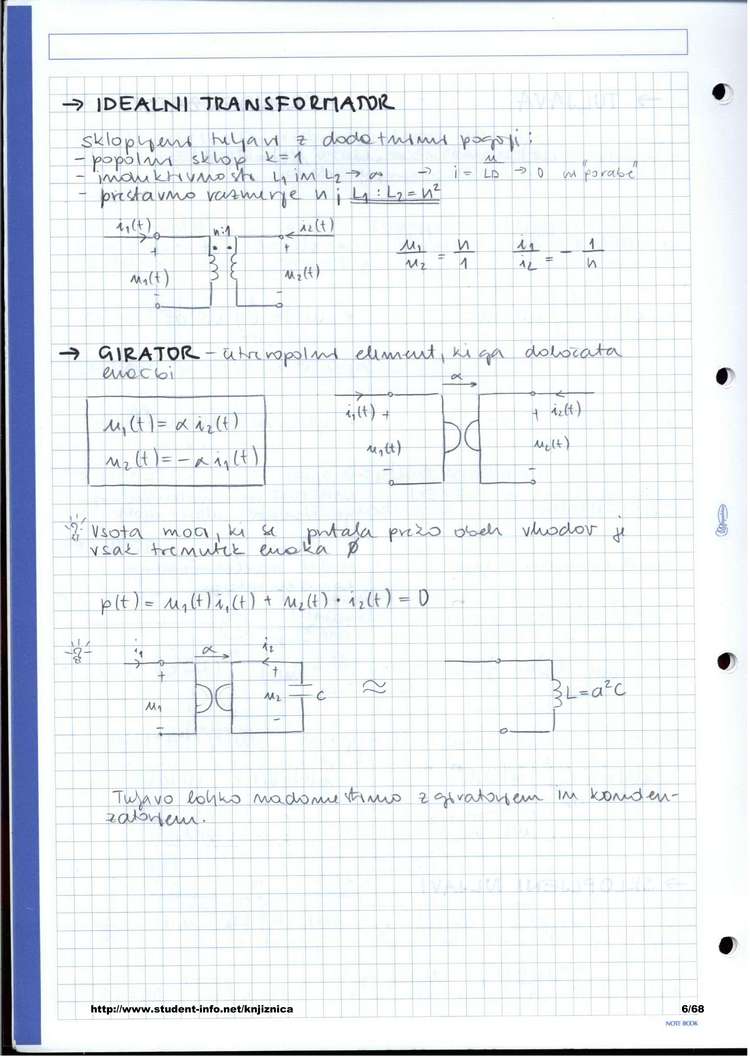 → IDEALNI TRANSFORMATOR
sklopljeni tuljavi z dodatnimi pogoji:
- popolni sklop k=1
- induktivnosti L1 in L2 → ∞ → i = u/L∞ → 0 ni "porabe"
- prestavno razmerje n; L1 : L2 = n²
i1(t) n:1 i2(t)
+ +
u1(t) u2(t)
- -
u1/u2 = n/1 i1/i2 = - 1/n
→ GIRATOR - četveropolni element, ki ga določata
enačbi
α
u1(t) = α i2(t)
u2(t) = -α i1(t)
i1(t) + + i2(t)
u1(t) u2(t)
- -
Vsota moči, ki se pretaka prežo obeh vhodov je
vsak trenutek enaka 0
p(t) = u1(t) i1(t) + u2(t) · i2(t) = 0
i1 α i2
+ +
u1 u2 C ≈ L=a²C
- -
Tuljavo lahko nadomestimo z giratorjem in konden-
zatorjem.
http://www.student-info.net/knjiznica 6/68
NOTE BOOK